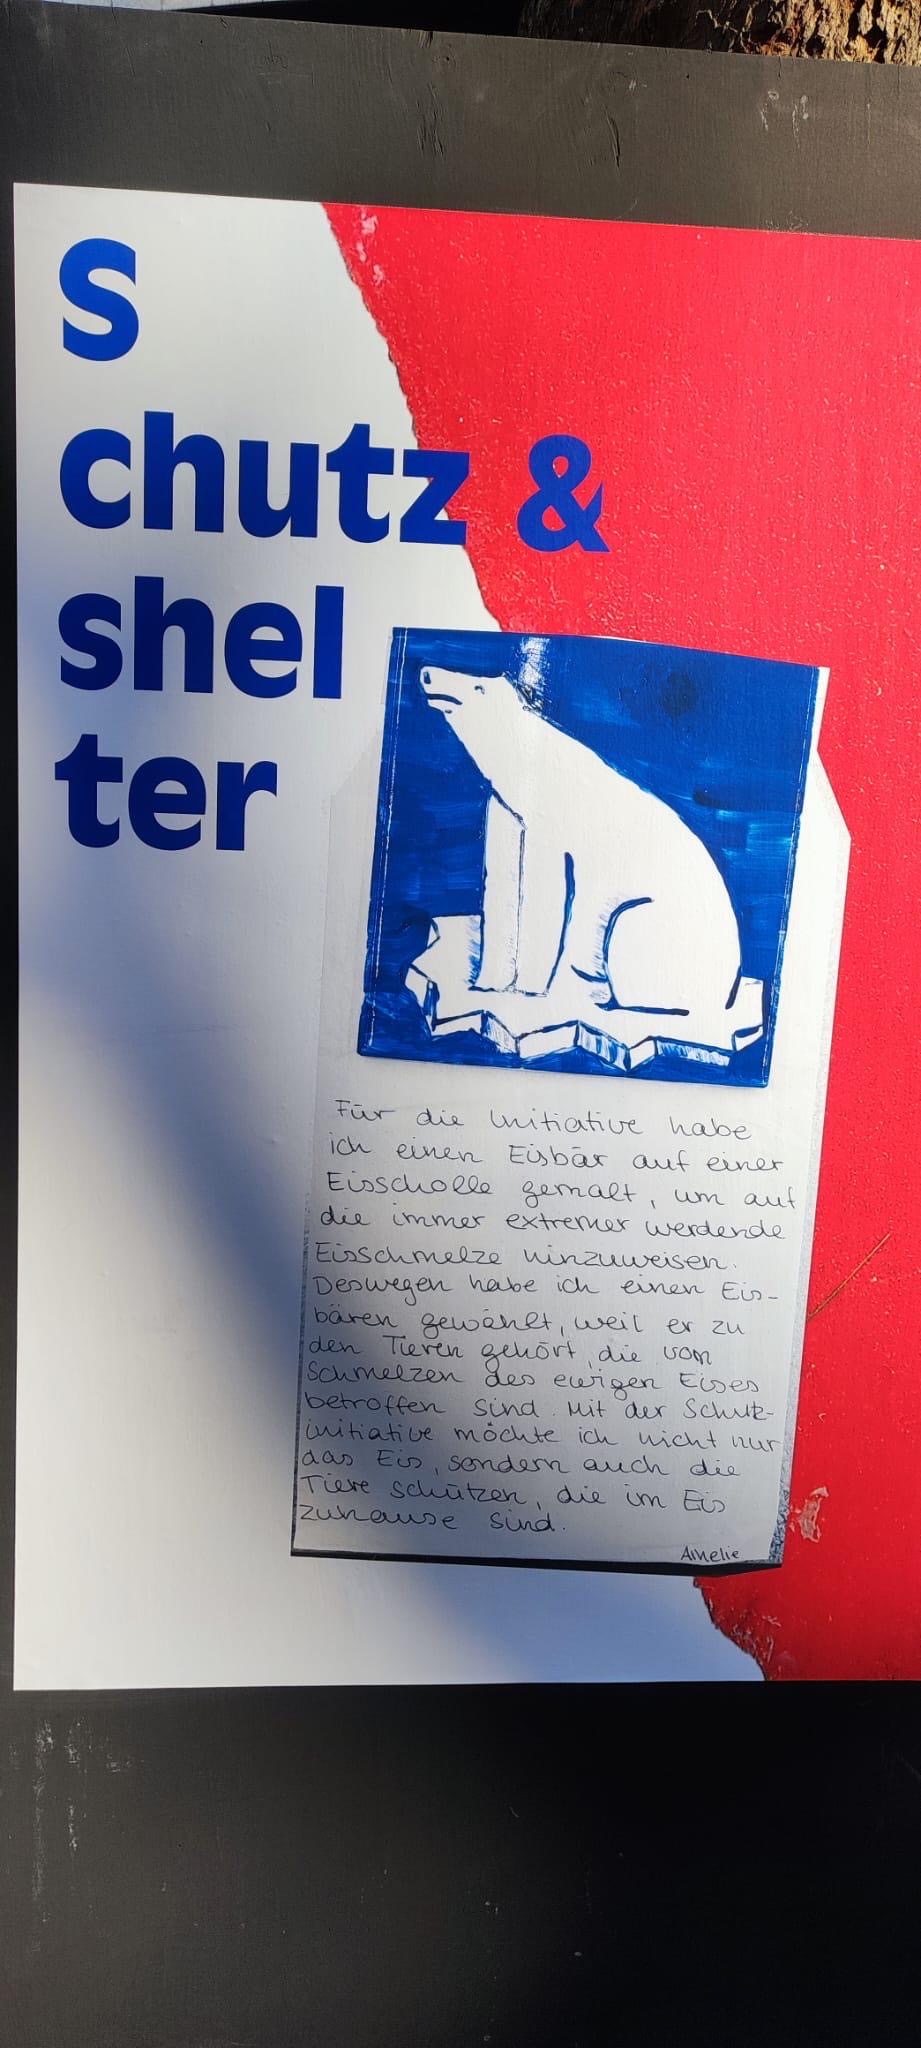 S
chutz &
shel
ter
Für die Initiative habe
ich einen Eisbär auf einer
Eisscholle gemalt, um auf
die immer extremer werdende
Eisschmelze hinzuweisen.
Deswegen habe ich einen Eis-
bären gewählt, weil er zu
den Tieren gehört, die vom
Schmelzen des ewigen Eises
betroffen sind. Mit der Schutz-
initiative möchte ich nicht nur
das Eis, sondern auch die
Tiere schützen, die im Eis
zuhause sind.
Amelie